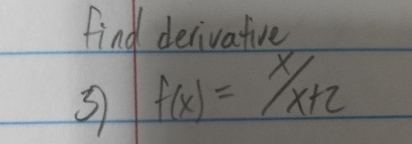 find derivative
3) f(x) = x/x+2